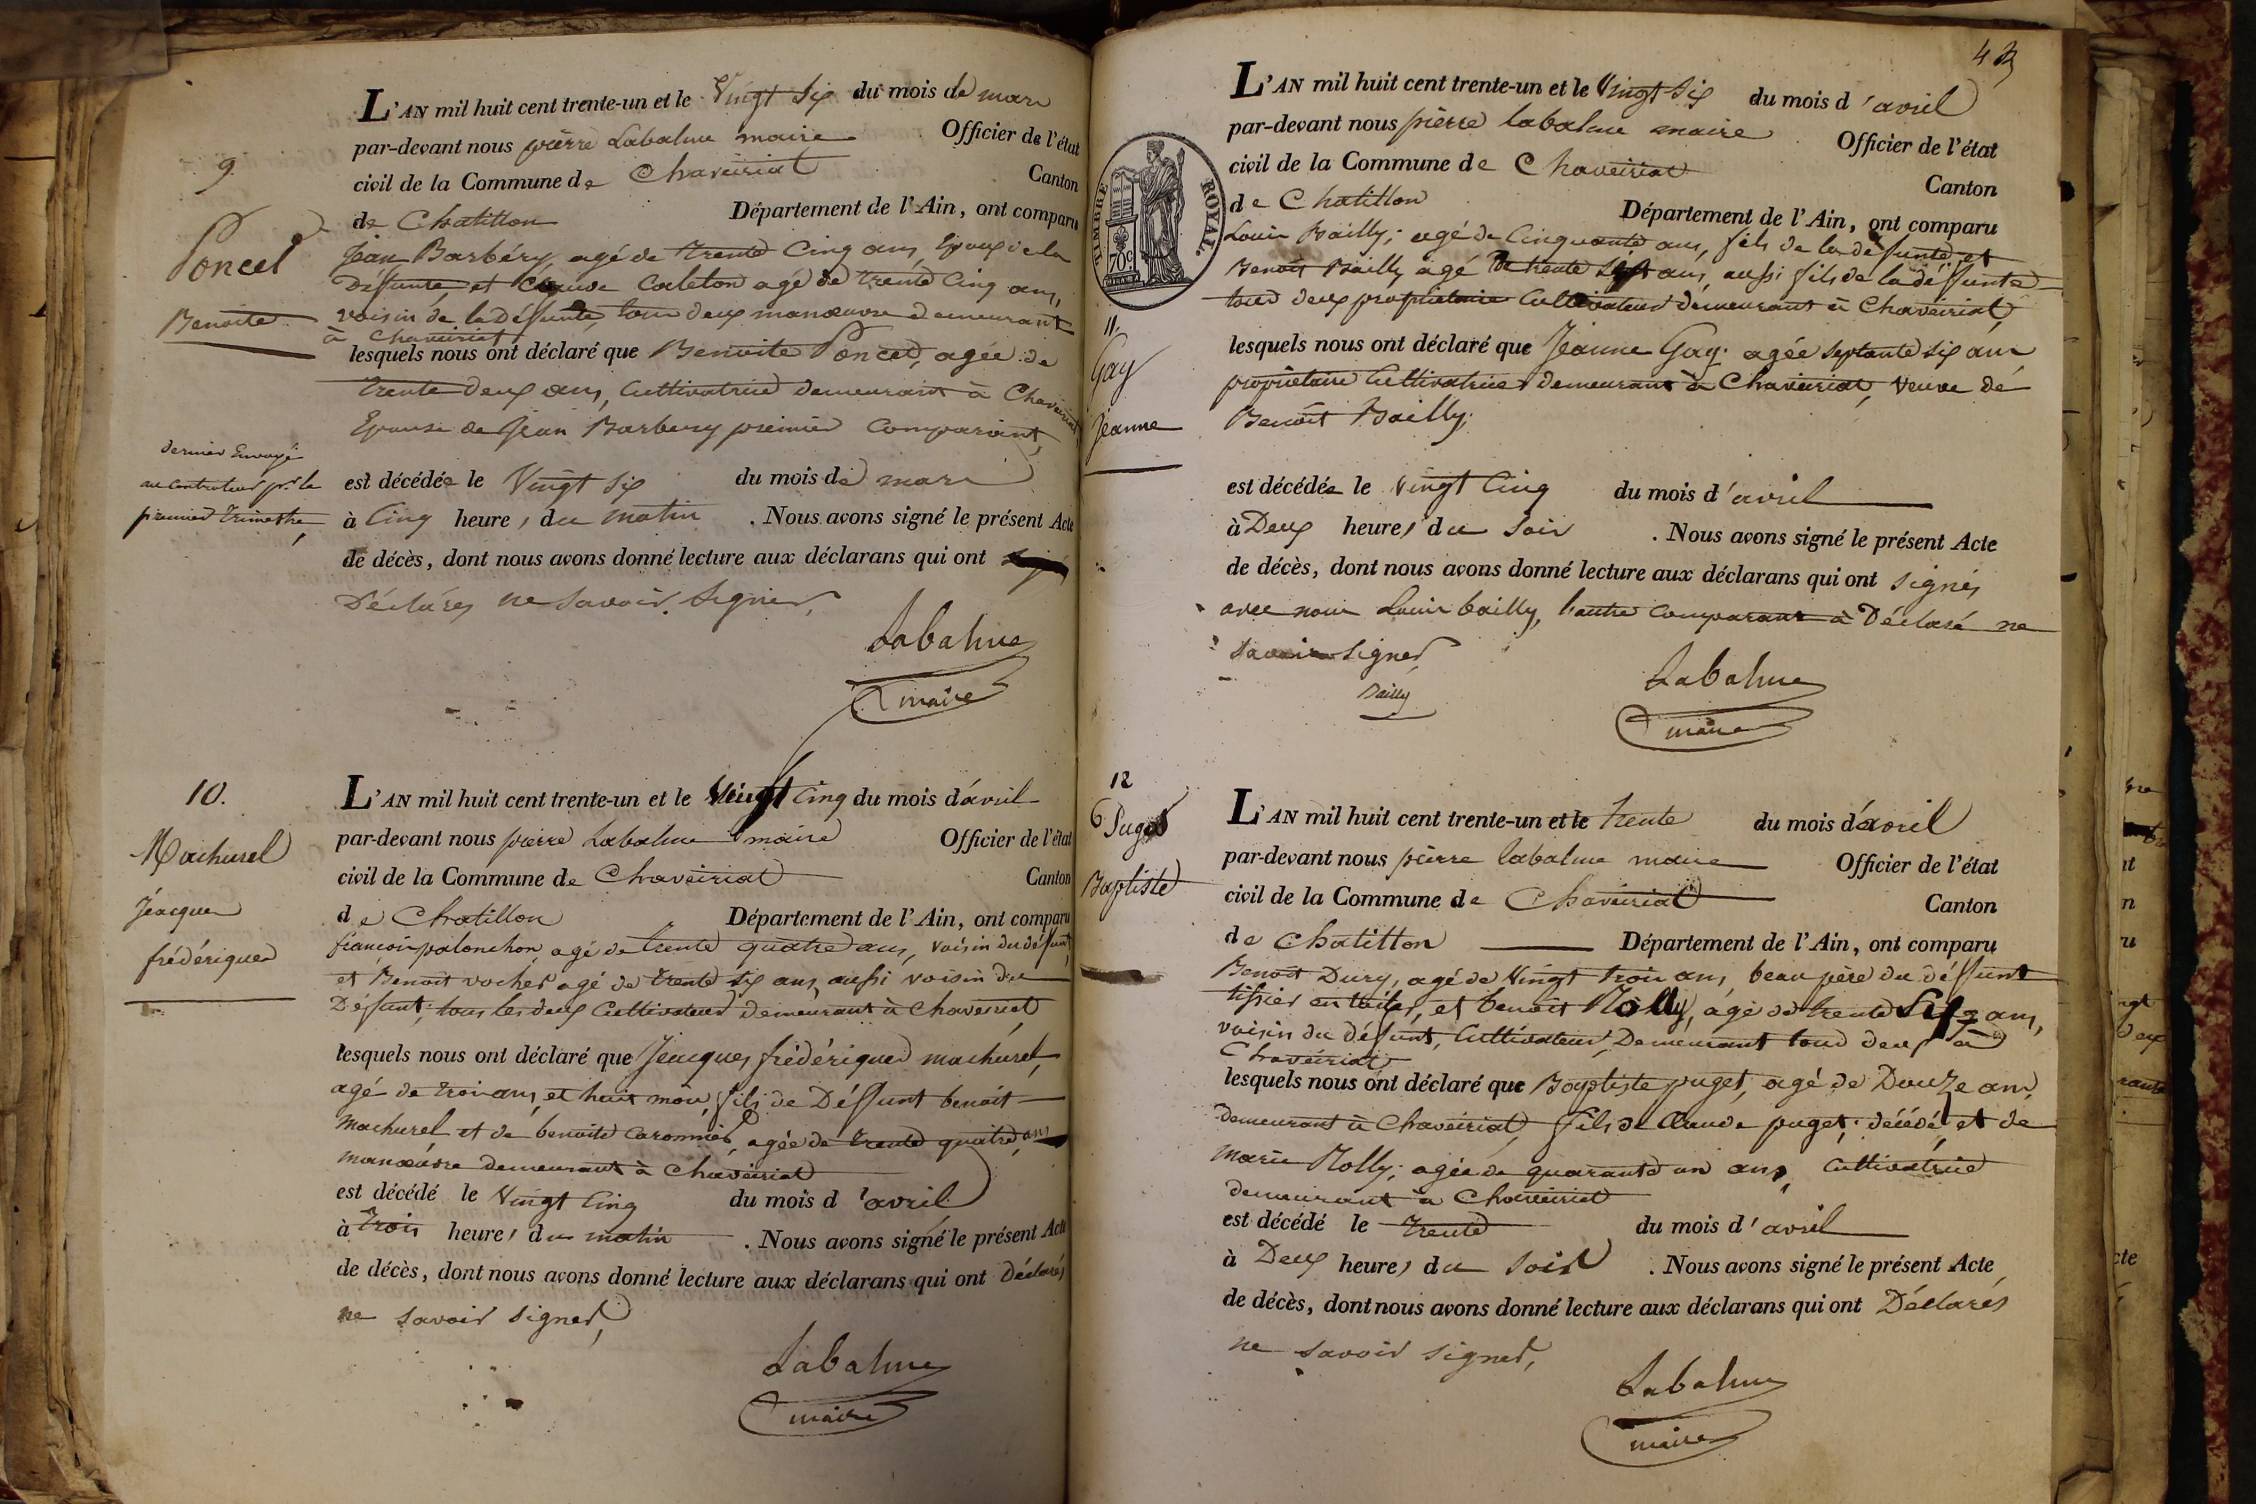 9
Poncet
Benoite
dernier Envoyé
au Controleur pr. le
premier trimestre,
L'AN mil huit cent trente-un et le Vingt Six du mois de mars
par-devant nous pierre Labalme maire Officier de l'état
civil de la Commune de Chaveiriat Canton
de Chatillon Département de l'Ain, ont comparu
Jean Barbéry, agé de trente Cinq ans, Epoux de la
Défunte, et Claude Caleton agé de trente Cinq ans,
voisin de la Défunte, tous deux manœuvre demeurant
à Chaveiriat
lesquels nous ont déclaré que Benoite Poncet, agée de
trente deux ans, Cultivatrice demeurant à Chaveiriat
Epouse de Jean Barbery premier Comparant,
est décédée le Vingt Six du mois de mars
à Cinq heures du matin . Nous avons signé le présent Acte
de décès, dont nous avons donné lecture aux déclarans qui ont
Déclarés ne Savoir Signer,
Labalme
maire
10.
Machurel
Jeacques
frédérique
L'AN mil huit cent trente-un et le Vingt Cinq du mois d'avril
par-devant nous pierre Labalme maire Officier de l'état
civil de la Commune de Chaveiriat Canton
de Chatillon Département de l'Ain, ont comparu
françois polonchon, agé de trente quatre ans, voisin du défunt,
et Benoit vocher agé de trente Six ans, aussi voisin du
Défunt, tous les deux Cultivateurs demeurant à Chaveiriat
lesquels nous ont déclaré que Jeacques frédérique machurel,
agé de trois ans, et huit mois, fils de Déffunt benoit
machurel et de benoite caronnier, agée de trente quatre ans
manœuvre demeurant à Chaveiriat
est décédé le Vingt Cinq du mois d'avril
à trois heures du matin . Nous avons signé le présent Acte
de décès, dont nous avons donné lecture aux déclarans qui ont Déclarés
ne savoir signer,
Labalme
maire
43
TIMBRE ROYAL.
70c
11.
Gay
Jeanne
L'AN mil huit cent trente-un et le Vingt Six du mois d'avril
par-devant nous pierre labalme maire Officier de l'état
civil de la Commune de Chaveiriat Canton
de Chatillon Département de l'Ain, ont comparu
Louis Bailly, agé de Cinquante ans, fils de la défunte, et
Benoit Bailly agé de trente Sept ans, aussi fils de la déffunte
tous deux propriétaire Cultivateur demeurant à Chaveiriat,
lesquels nous ont déclaré que Jeanne Gay. agée septante six ans
propriétaire Cultivatrice demeurant à Chaveiriat, veuve de
Benoit Bailly,
est décédée le Vingt Cinq du mois d'avril
à Deux heures du Soir . Nous avons signé le présent Acte
de décès, dont nous avons donné lecture aux déclarans qui ont signés
avec nous Louis bailly, l'autre Comparant à Déclaré ne
Savoir Signer,
Bailly
Labalme
maire
12
Puget
Baptiste
L'AN mil huit cent trente-un et le trente du mois d'avril
par-devant nous pierre labalme maire Officier de l'état
civil de la Commune de Chaveiriat Canton
de Chatillon Département de l'Ain, ont comparu
Benoit Dury, agé de Vingt trois ans, beau père du déffunt
tissier en toiles, et benoit Molly, agé de trente Six ans,
voisin du défunt, Cultivateur, Demeurant tous deux à
Chaveiriat
lesquels nous ont déclaré que Baptiste puget, agé de Douze ans,
demeurant à Chaveiriat, fils de Claude puget, décédé, et de
Marie Molly, agée de quarante un ans, Cultivatrice
demeurant à Chaveiriat
est décédé le trente du mois d'avril
à Deux heures du Soir . Nous avons signé le présent Acte
de décès, dont nous avons donné lecture aux déclarans qui ont Déclarés
ne savoir signer,
Labalme
maire